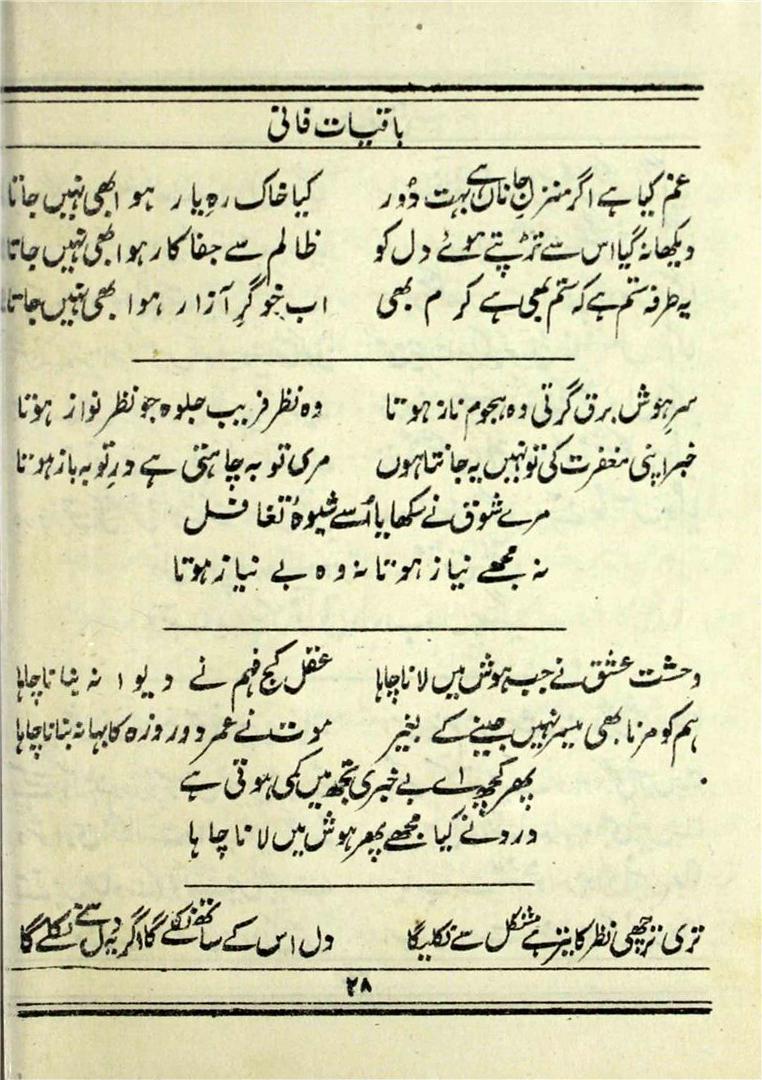 باقیات فانی
غم کیا ہے اگر منزل جاناں ہے بہت دُور کیا خاک رہِ یار ہوا بھی نہیں جاتا
دیکھا نہ گیا اس سے تڑپتے ہوئے دل کو ظالم سے جفا کار ہوا بھی نہیں جاتا
یہ طرفہ ستم ہے کہ ستم بھی ہے کرم بھی اب خوگرِ آزار ہوا بھی نہیں جاتا
سرِ ہوش برق گرتی وہ ہجوم ناز ہوتا وہ نظر فریب جلوہ جو نظر نواز ہوتا
خبر اپنی مغفرت کی تو نہیں یہ جانتا ہوں مری توبہ چاہتی ہے درِ توبہ باز ہوتا
مرے شوق نے سکھایا اُسے شیوۂ تغافل
نہ مجھے نیاز ہوتا نہ وہ بے نیاز ہوتا
وحشت عشق نے جب ہوش میں لانا چاہا عقل کج فہم نے دیوانہ بنانا چاہا
ہم کو مرنا بھی میسر نہیں جینے کے بغیر موت نے عمر دو روزہ کا بہانہ بنانا چاہا
پھر کچھ اے بے خبری تجھ میں کمی ہوتی ہے
درد نے کیا مجھے پھر ہوش میں لانا چاہا
تری ترچھی نظر کا تیر ہے مشکل سے نکلیگا دل اس کے ساتھ نکلے گا اگر یہ دل سے نکلے گا
۲۸